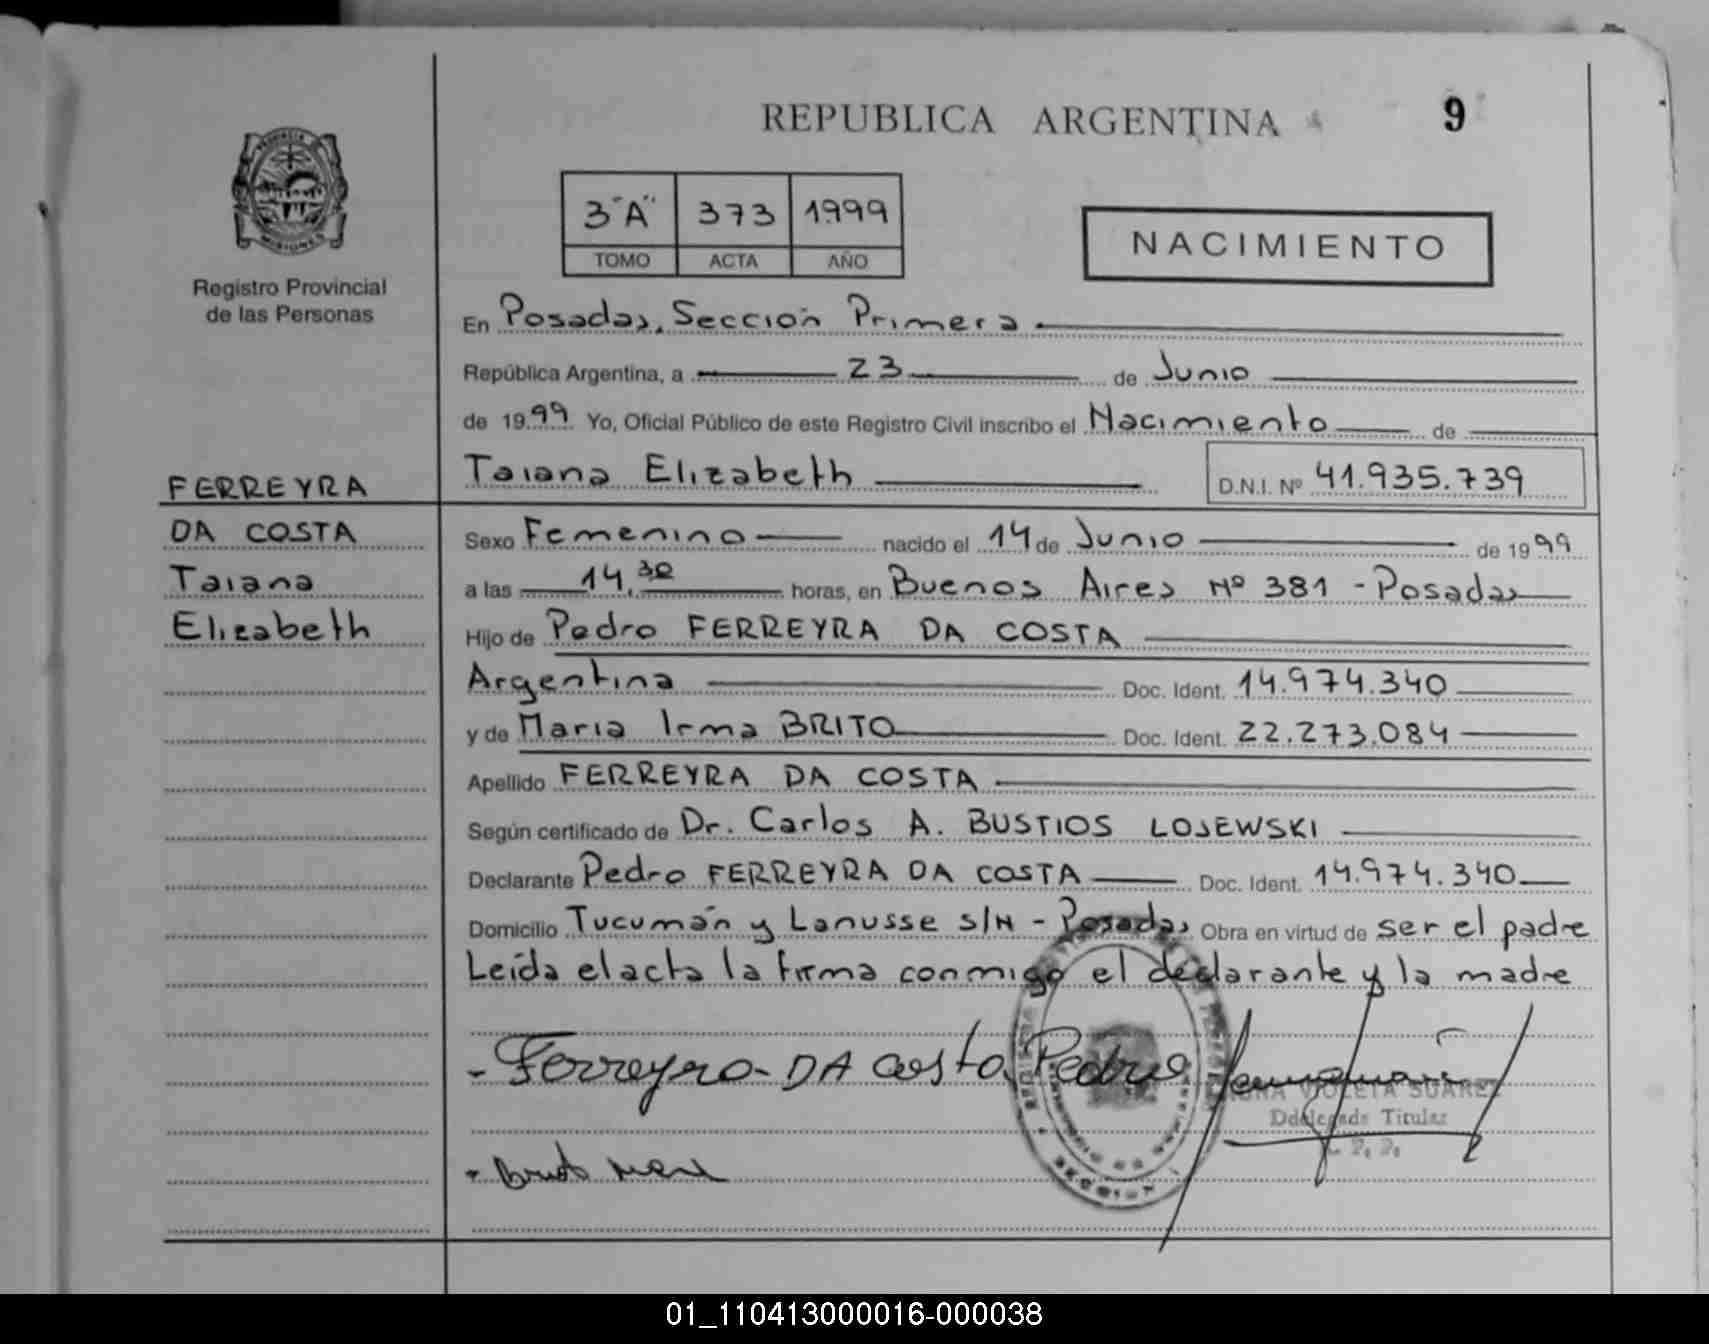 REPUBLICA ARGENTINA 9
MISIONES
Registro Provincial
de las Personas
3 "A" 373 1999
TOMO ACTA AÑO
NACIMIENTO
En Posadas, Sección Primera
República Argentina, a 23 de Junio
de 1999 Yo, Oficial Público de este Registro Civil inscribo el Nacimiento de
Taiana Elizabeth D.N.I. Nº 41.935.739
FERREYRA
DA COSTA
Taiana
Elizabeth
Sexo Femenino nacido el 14 de Junio de 1999
a las 14,30 horas, en Buenos Aires Nº 381 - Posadas
Hijo de Pedro FERREYRA DA COSTA
Argentina Doc. Ident. 14.974.340
y de Maria Irma BRITO Doc. Ident. 22.273.084
Apellido FERREYRA DA COSTA
Según certificado de Dr. Carlos A. BUSTIOS LOJEWSKI
Declarante Pedro FERREYRA DA COSTA Doc. Ident. 14.974.340
Domicilio Tucumán y Lanusse S/N - Posadas Obra en virtud de ser el padre
Leída el acta la firma conmigo el declarante y la madre
- Ferreyra - DA Costa, Pedro
VIOLETA SUAREZ
Titular
01_110413000016-000038